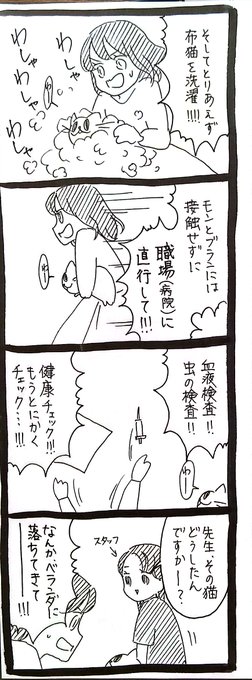 そしてとりあえず
布猫を洗濯!!!!
わしゃ
わしゃ
わしゃ
わしゃ
モンとブラニには
接触せずに
職場(病院)に
直行して!!!
血液検査!!
虫の検査!!
健康チェック!!
もうとにかく
チェック…!!!
先生、その猫
どうしたん
ですかー?
スタッフ
なんかベランダに
落ちてきて
ーーー!!!